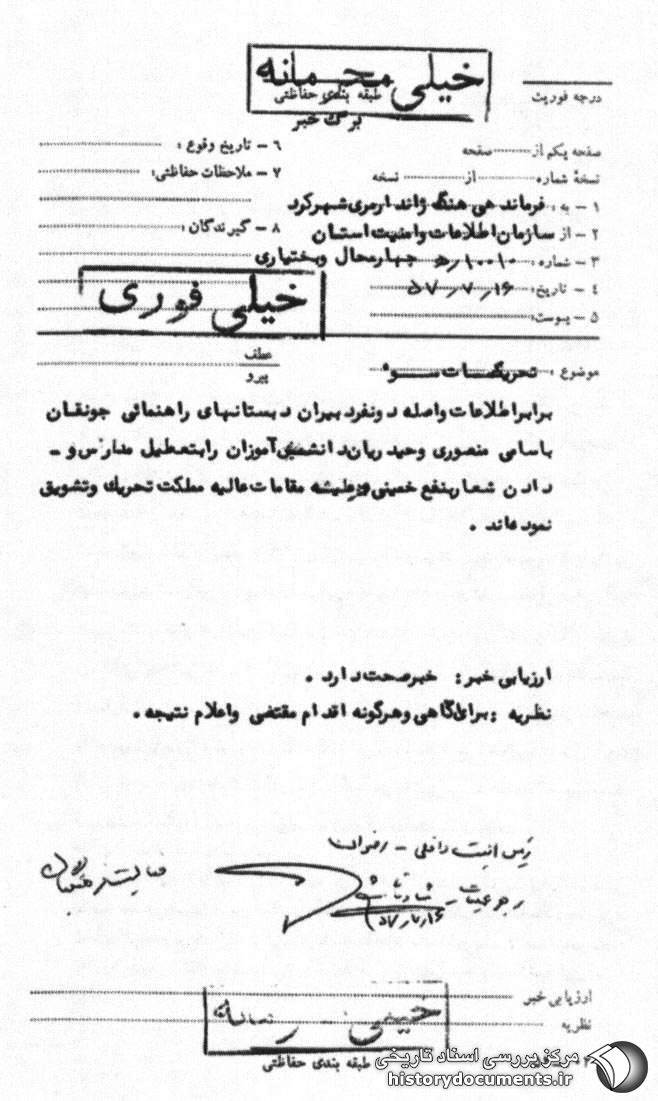 خیلی محرمانه
طبقه بندی حفاظتی
درجه فوریت
برگ خبر
صفحه یکم از صفحه
نسخهٔ شماره از نسخه
۱ – به : فرماندهی هنگ ژاندارمری شهرکرد
۲ – از سازمان اطلاعات وامنیت استان
۳ – شماره : ۱۰۰۱۰/ه‍ چهارمحال وبختیاری
۴ – تاریخ: ۵۷/۷/۱۶
۵ – پیوست:
۶ – تاریخ وقوع :
۷ – ملاحظات حفاظتی:
۸ – گیرندگان :
خیلی فوری
موضوع : تحریکات سوء
عطف
پیرو
برابراطلاعات واصله دونفردبیران دبستانهای راهنمائی جونقان
باسامی منصوری وحیدریان دانش آموزان رابتعطیل مدارس و –
دادن شعاربنفع خمینی وعلیه مقامات عالیه مملکت تحریک وتشویق
نموده‌اند .
ارزیابی خبر : خبرصحت دارد .
نظریه : برای آگاهی وهرگونه اقدام مقتضی واعلام نتیجه .
داخلی –
۵۷/۷/۱۶
ارزیابی خبر
نظریه
طبقه بندی حفاظتی
مرکز بررسی اسناد تاریخی
historydocuments.ir